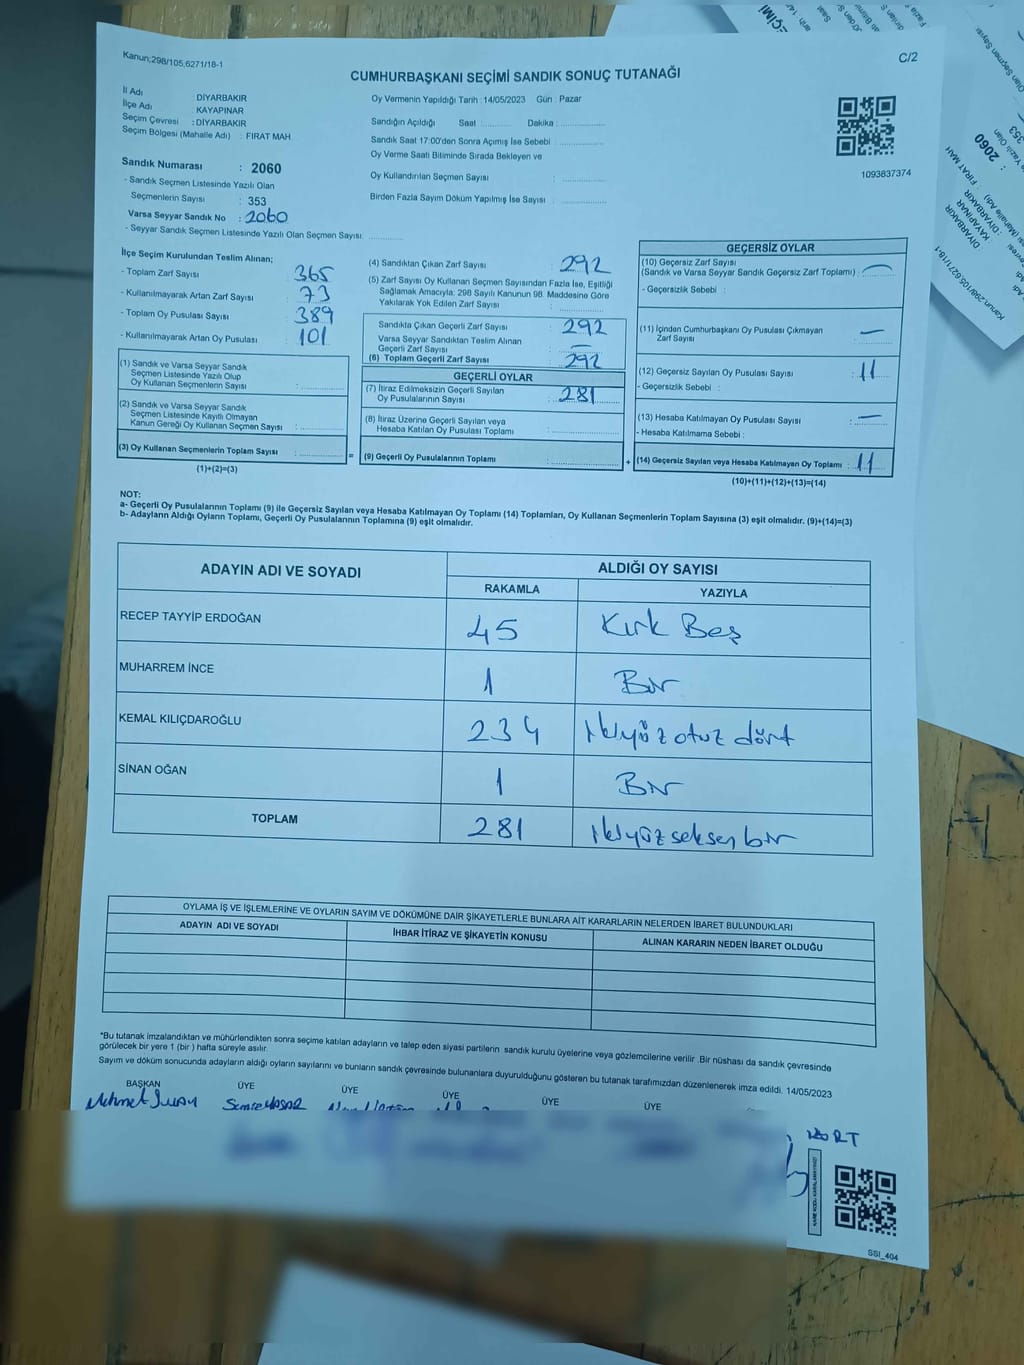 Kanun;298/105,6271/18-1
C/2
CUMHURBAŞKANI SEÇİMİ SANDIK SONUÇ TUTANAĞI
İl Adı DİYARBAKIR
İlçe Adı KAYAPINAR
Seçim Çevresi : DİYARBAKIR
Seçim Bölgesi (Mahalle Adı) : FIRAT MAH
Oy Vermenin Yapıldığı Tarih : 14/05/2023 Gün : Pazar
Sandığın Açıldığı Saat :........... Dakika :...............
Sandık Saat 17:00'den Sonra Açımış İse Sebebi :...............
Oy Verme Saati Bitiminde Sırada Bekleyen ve
Oy Kullandırılan Seçmen Sayısı :...............
Birden Fazla Sayım Döküm Yapılmış İse Sayısı :...............
1093837374
Sandık Numarası : 2060
- Sandık Seçmen Listesinde Yazılı Olan
Seçmenlerin Sayısı : 353
Varsa Seyyar Sandık No : 2060
- Seyyar Sandık Seçmen Listesinde Yazılı Olan Seçmen Sayısı:...............
İlçe Seçim Kurulundan Teslim Alınan;
- Toplam Zarf Sayısı 365
- Kullanılmayarak Artan Zarf Sayısı : 73
- Toplam Oy Pusulası Sayısı : 389
- Kullanılmayarak Artan Oy Pusulası : 101
(1) Sandık ve Varsa Seyyar Sandık
Seçmen Listesinde Yazılı Olup
Oy Kullanan Seçmenlerin Sayısı :...............
(2) Sandık ve Varsa Seyyar Sandık
Seçmen Listesinde Kayıtlı Olmayan
Kanun Gereği Oy Kullanan Seçmen Sayısı :...............
(3) Oy Kullanan Seçmenlerin Toplam Sayısı :...............
(1)+(2)=(3)
(4) Sandıktan Çıkan Zarf Sayısı : 292
(5) Zarf Sayısı Oy Kullanan Seçmen Sayısından Fazla İse, Eşitliği
Sağlamak Amacıyla; 298 Sayılı Kanunun 98. Maddesine Göre
Yakılarak Yok Edilen Zarf Sayısı :...............
Sandıkta Çıkan Geçerli Zarf Sayısı : 292
Varsa Seyyar Sandıktan Teslim Alınan
Geçerli Zarf Sayısı : —
(6) Toplam Geçerli Zarf Sayısı : 292
GEÇERLİ OYLAR
(7) İtiraz Edilmeksizin Geçerli Sayılan
Oy Pusulalarının Sayısı : 281
(8) İtiraz Üzerine Geçerli Sayılan veya
Hesaba Katılan Oy Pusulası Toplamı :...............
= (9) Geçerli Oy Pusulalarının Toplamı :...............
GEÇERSİZ OYLAR
(10) Geçersiz Zarf Sayısı
(Sandık ve Varsa Seyyar Sandık Geçersiz Zarf Toplamı) : —
- Geçersizlik Sebebi :
(11) İçinden Cumhurbaşkanı Oy Pusulası Çıkmayan
Zarf Sayısı : —
(12) Geçersiz Sayılan Oy Pusulası Sayısı : 11
- Geçersizlik Sebebi :
(13) Hesaba Katılmayan Oy Pusulası Sayısı : —
- Hesaba Katılmama Sebebi :
+ (14) Geçersiz Sayılan veya Hesaba Katılmayan Oy Toplamı : 11
(10)+(11)+(12)+(13)=(14)
NOT:
a- Geçerli Oy Pusulalarının Toplamı (9) ile Geçersiz Sayılan veya Hesaba Katılmayan Oy Toplamı (14) Toplamları, Oy Kullanan Seçmenlerin Toplam Sayısına (3) eşit olmalıdır. (9)+(14)=(3)
b- Adayların Aldığı Oyların Toplamı, Geçerli Oy Pusulalarının Toplamına (9) eşit olmalıdır.
ADAYIN ADI VE SOYADI ALDIĞI OY SAYISI
RAKAMLA YAZIYLA
RECEP TAYYİP ERDOĞAN 45 Kırk Beş
MUHARREM İNCE 1 Bir
KEMAL KILIÇDAROĞLU 234 İkiyüz otuz dört
SİNAN OĞAN 1 Bir
TOPLAM 281 İkiyüz seksen bir
OYLAMA İŞ VE İŞLEMLERİNE VE OYLARIN SAYIM VE DÖKÜMÜNE DAİR ŞİKAYETLERLE BUNLARA AİT KARARLARIN NELERDEN İBARET BULUNDUKLARI
ADAYIN ADI VE SOYADI İHBAR İTİRAZ VE ŞİKAYETİN KONUSU ALINAN KARARIN NEDEN İBARET OLDUĞU
*Bu tutanak imzalandıktan ve mühürlendikten sonra seçime katılan adayların ve talep eden siyasi partilerin sandık kurulu üyelerine veya gözlemcilerine verilir .Bir nüshası da sandık çevresinde
görülecek bir yere 1 (bir ) hafta süreyle asılır.
Sayım ve döküm sonucunda adayların aldığı oyların sayılarını ve bunların sandık çevresinde bulunanlara duyurulduğunu gösteren bu tutanak tarafımızdan düzenlenerek imza edildi. 14/05/2023
BAŞKAN ÜYE ÜYE ÜYE ÜYE ÜYE
Mehmet
SSI_404